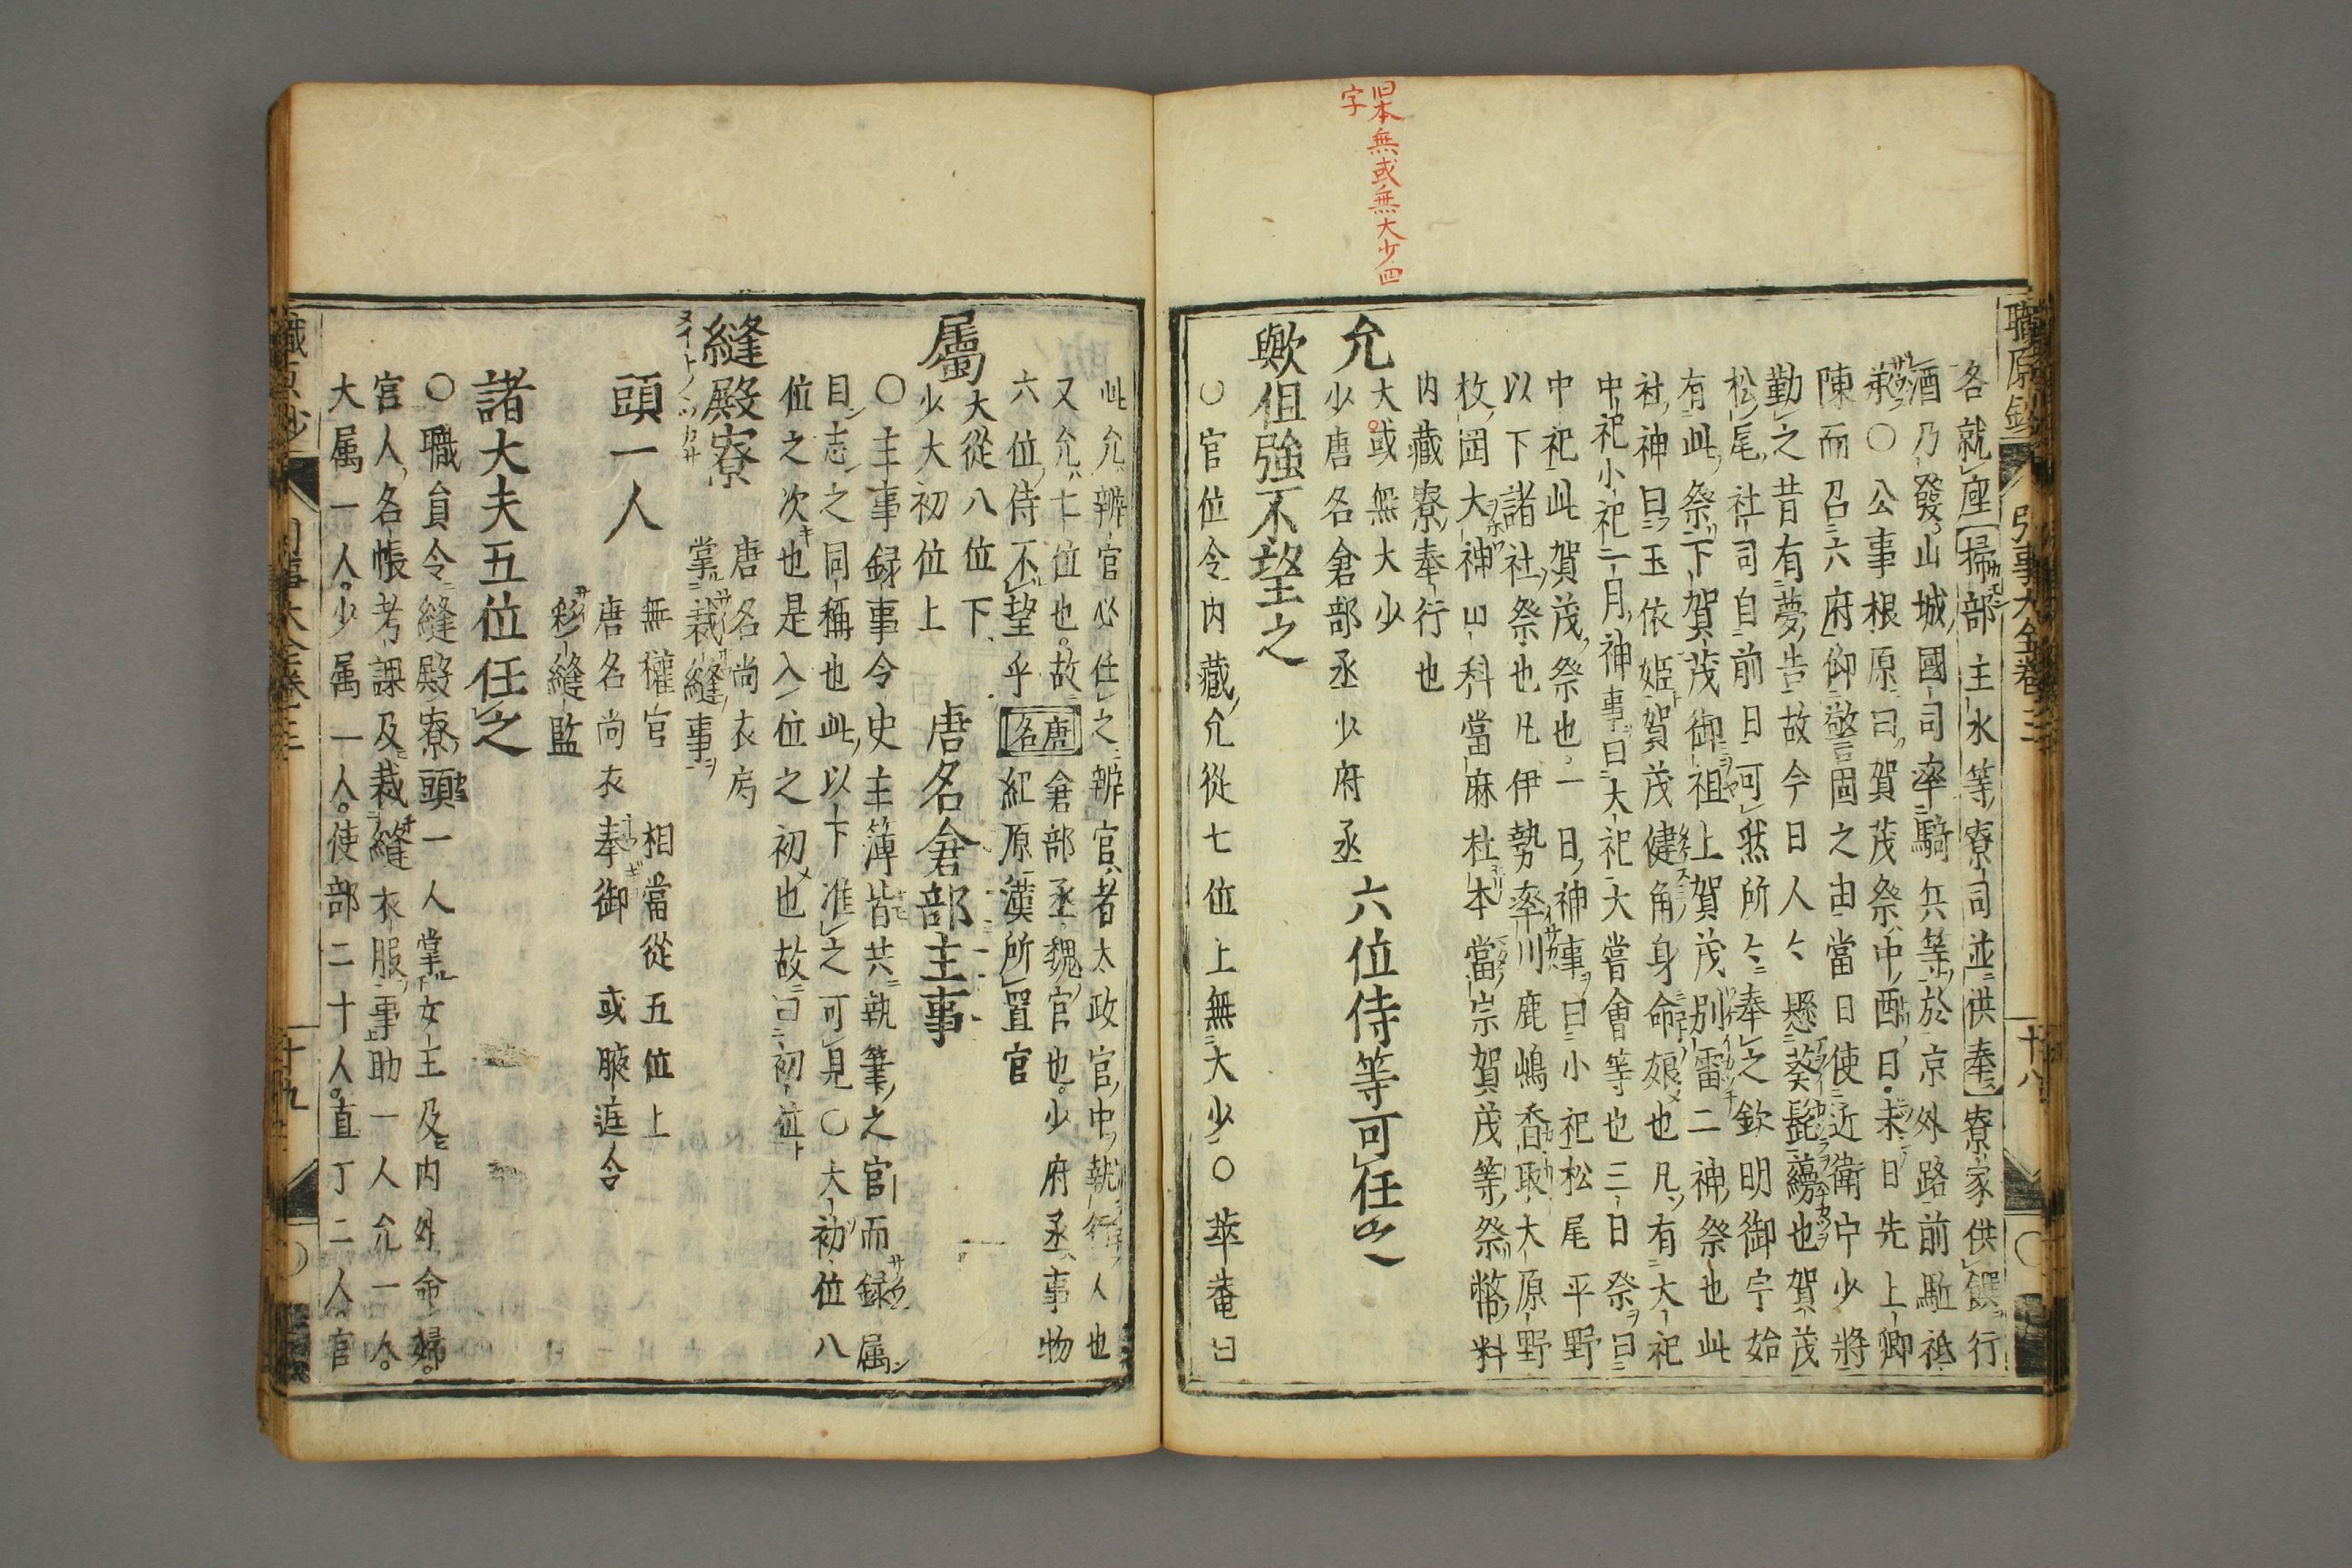 旧本無或無大少四
字
職原鈔 引事大全卷三 十八
各就座[掃部主水等寮司並供奉]寮家供饌行
酒乃發山城國司率騎兵等於京外路前駈祗
承〇公事根原曰賀茂祭中酉日未日先上卿
陳而召六府仰警固之由當日使近衛中少將
勤之昔有夢告故今日人々懸葵髭蘰也賀茂
松尾社司自前日可然所々奉之欽明御宇始
有此祭下賀茂御祖上賀茂別雷二神祭也此
社神曰玉依姬賀茂健角身命娘也凡有大祀
中祀小祀二月神事曰大祀大嘗會等也三日祭曰
中祀此賀茂祭也一日神事曰小祀松尾平野
以下諸社祭也凡伊勢率川鹿嶋香取大原野
枚岡大神山科當麻杜本當宗賀茂等祭幣料
内藏寮奉行也
允 大或無大少
少唐名倉部丞少府丞 六位侍等可任之
歟但強不望之
〇官位令内藏允從七位上無大少〇華菴曰
此允辨官必任之辨官者太政官中執行人也
又允七位也故 倉部丞魏官也少府丞事物
六位侍不望乎[唐名]紀原漢所置官
屬 大從八位下
少大初位上 唐名倉部主事
〇主事録事令史主簿皆共執筆之官而録属
目志之同稱也此以下准之可見〇大初位八
位之次也是入位之初也故曰初位
縫殿寮 唐名尚衣房
ヌイトノツカサ 掌裁縫事
頭一人 無權官 相當從五位上
唐名尚衣奉御 或腋庭令
彩縫監
諸大夫五位任之
〇職員令縫殿寮頭一人掌女王及内外命婦
宮人名帳考課及裁縫衣服事助一人允一人
大属一人少属一人使部二十人直丁二人官
十九